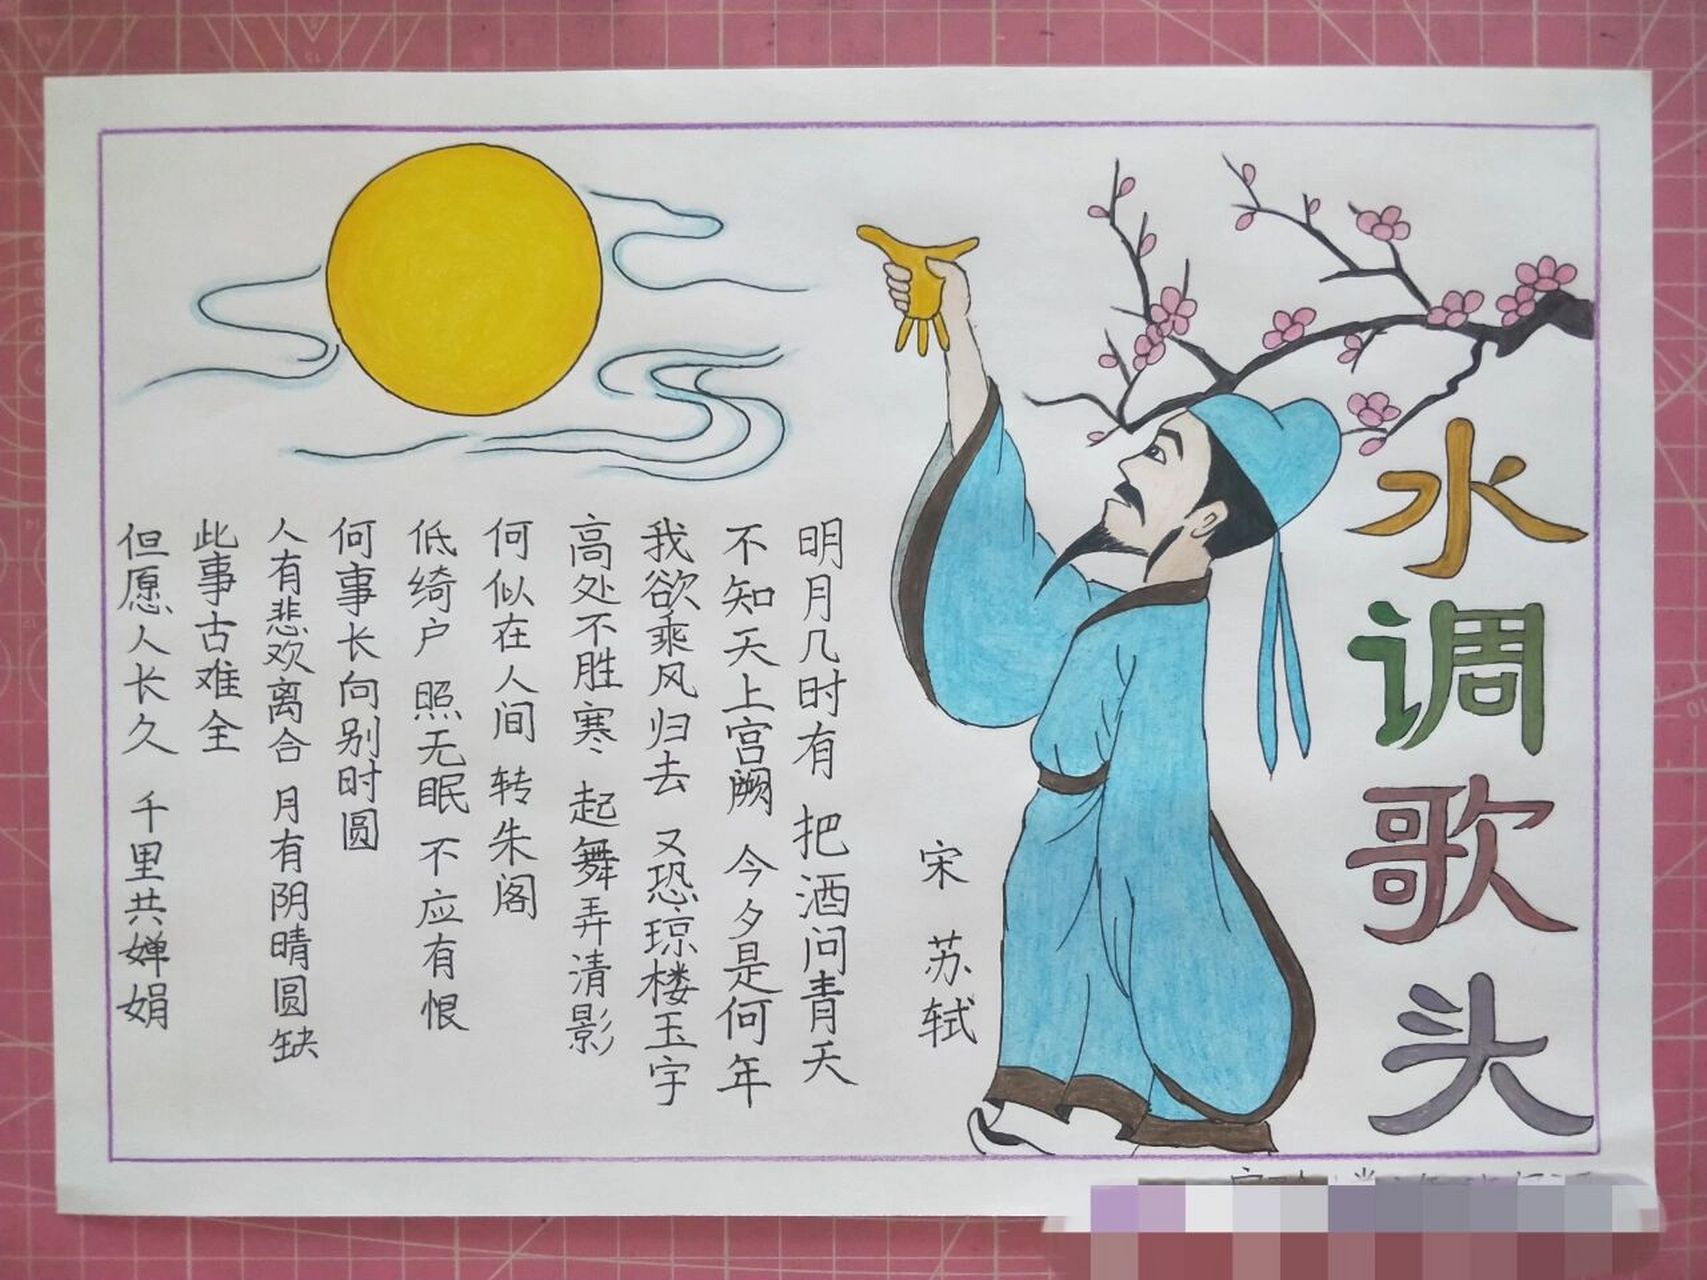 水调歌头
宋 苏轼
明月几时有 把酒问青天
不知天上宫阙 今夕是何年
我欲乘风归去 又恐琼楼玉宇
高处不胜寒 起舞弄清影
何似在人间 转朱阁
低绮户 照无眠 不应有恨
何事长向别时圆
人有悲欢离合 月有阴晴圆缺
此事古难全
但愿人长久 千里共婵娟